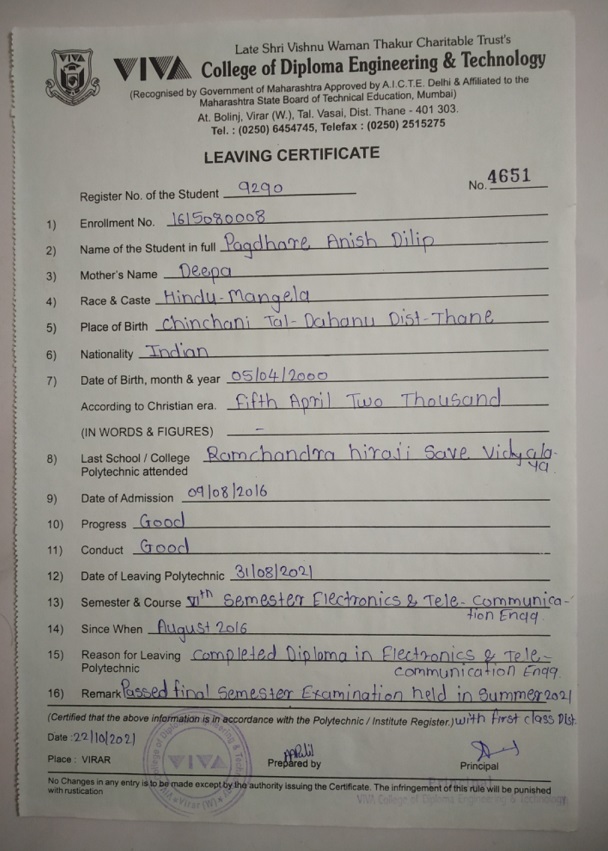 Late Shri Vishnu Waman Thakur Charitable Trust's
VIVA College of Diploma Engineering & Technology
(Recognised by Government of Maharashtra Approved by A.I.C.T.E. Delhi & Affiliated to the
Maharashtra State Board of Technical Education, Mumbai)
At. Bolinj, Virar (W.), Tal. Vasai, Dist. Thane - 401 303.
Tel. : (0250) 6454745, Telefax : (0250) 2515275
LEAVING CERTIFICATE
Register No. of the Student 9290 No. 4651
1) Enrollment No. 1615080008
2) Name of the Student in full Pagdhare Anish Dilip
3) Mother's Name Deepa
4) Race & Caste Hindu-Mangela
5) Place of Birth Chinchani Tal-Dahanu Dist-Thane
6) Nationality Indian
7) Date of Birth, month & year 05/04/2000
According to Christian era. Fifth April Two Thousand
(IN WORDS & FIGURES) –
8) Last School / College Ramchandra hiraji Save Vidyala-
Polytechnic attended ya
9) Date of Admission 09/08/2016
10) Progress Good
11) Conduct Good
12) Date of Leaving Polytechnic 31/08/2021
13) Semester & Course VIth Semester Electronics & Tele-Communica-
tion Engg.
14) Since When August 2016
15) Reason for Leaving Completed Diploma in Electronics & Tele-
Polytechnic communication Engg.
16) Remark Passed final Semester Examination held in Summer 2021
(Certified that the above information is in accordance with the Polytechnic / Institute Register.) with First class Dist.
Date : 22/10/2021
Place : VIRAR Prepared by Principal
VIVA
No Changes in any entry is to be made except by the authority issuing the Certificate. The infringement of this rule will be punished
with rustication
Principal
VIVA College of Diploma Engineering & Technology